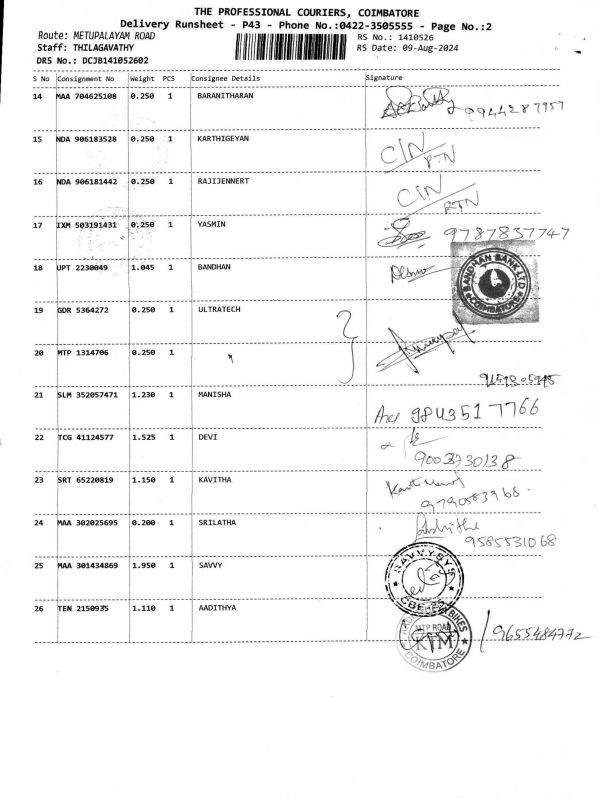 THE PROFESSIONAL COURIERS, COIMBATORE
Delivery Runsheet - P43 - Phone No.:0422-3505555 - Page No.:2
Route: METUPALAYAM ROAD RS No.: 1410526
Staff: THILAGAVATHY RS Date: 09-Aug-2024
DRS No.: DCJB141052602
S No Consignment No Weight PCS Consignee Details Signature
14 MAA 704625108 0.250 1 BARANITHARAN 9944287957
15 NDA 906183528 0.250 1 KARTHIGEYAN C/N RTN
16 NDA 906181442 0.250 1 RAJIJENNERT C/N RTN
17 IXM 503191431 0.250 1 YASMIN 9787837747
18 UPT 2230049 1.045 1 BANDHAN
BANDHAN BANK LTD COIMBATORE
19 GDR 5364272 0.250 1 ULTRATECH
20 MTP 1314706 0.250 1
21 SLM 352057471 1.230 1 MANISHA 9843517766
22 TCG 41124577 1.525 1 DEVI
9003730138
23 SRT 65220819 1.150 1 KAVITHA
24 MAA 302025695 0.200 1 SRILATHA
9585531068
25 MAA 301434869 1.950 1 SAVVY SAVVYSYS
26 TEN 2150935 1.110 1 AADITHYA 9655484772
BIKES
MTP ROAD
KTM
COIMBATORE